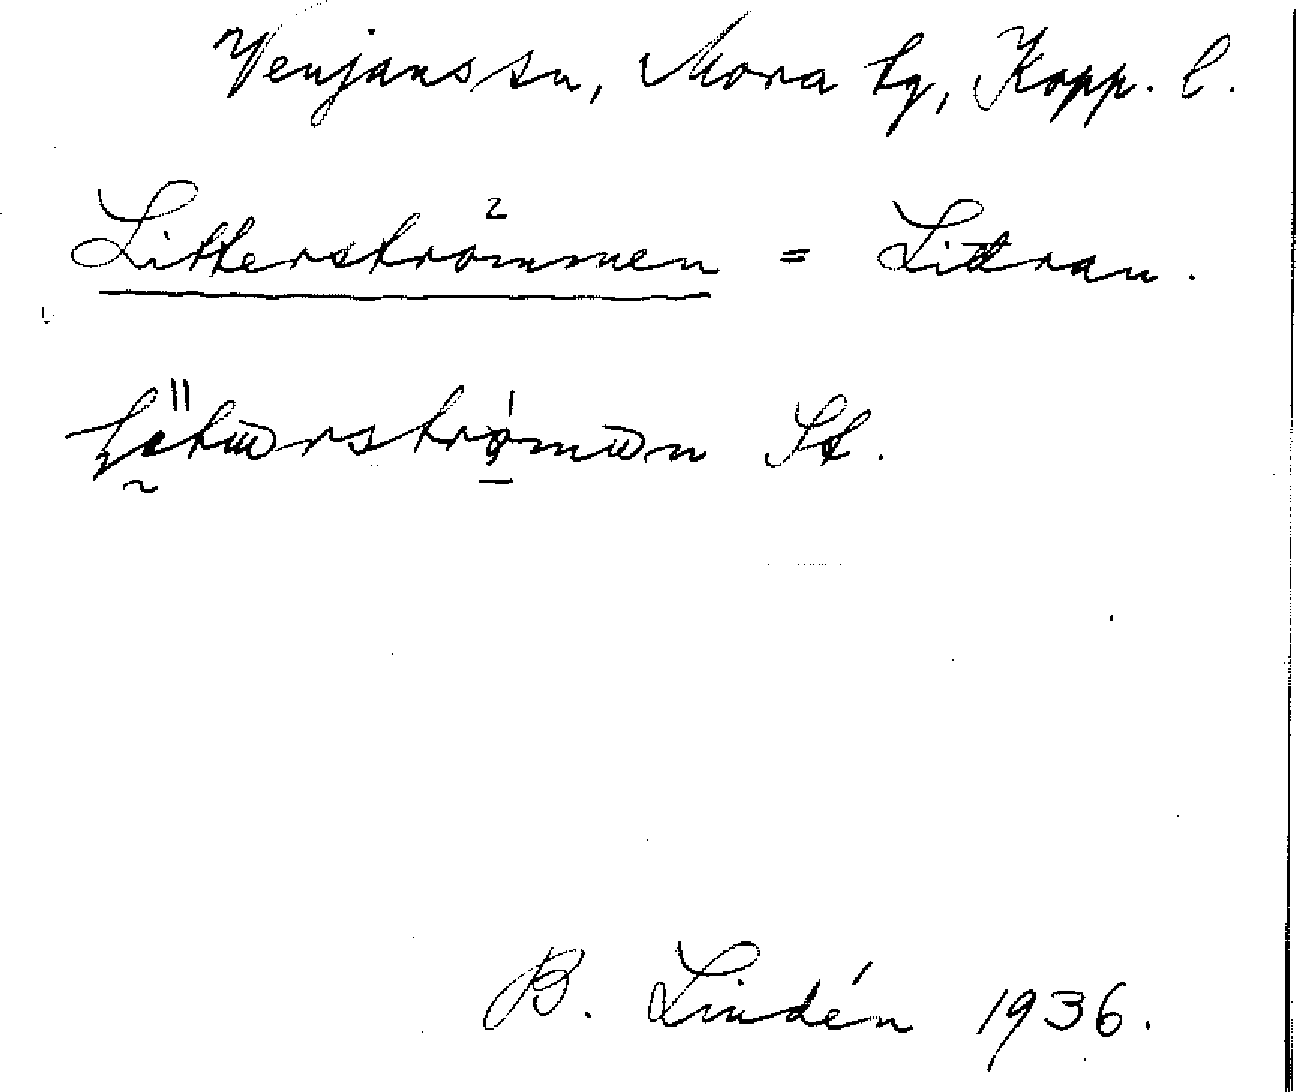 Venjans sn, Mora tg, Kopp. l.
Litterströmmen = Littran.
St.
B. Lindén 1936.